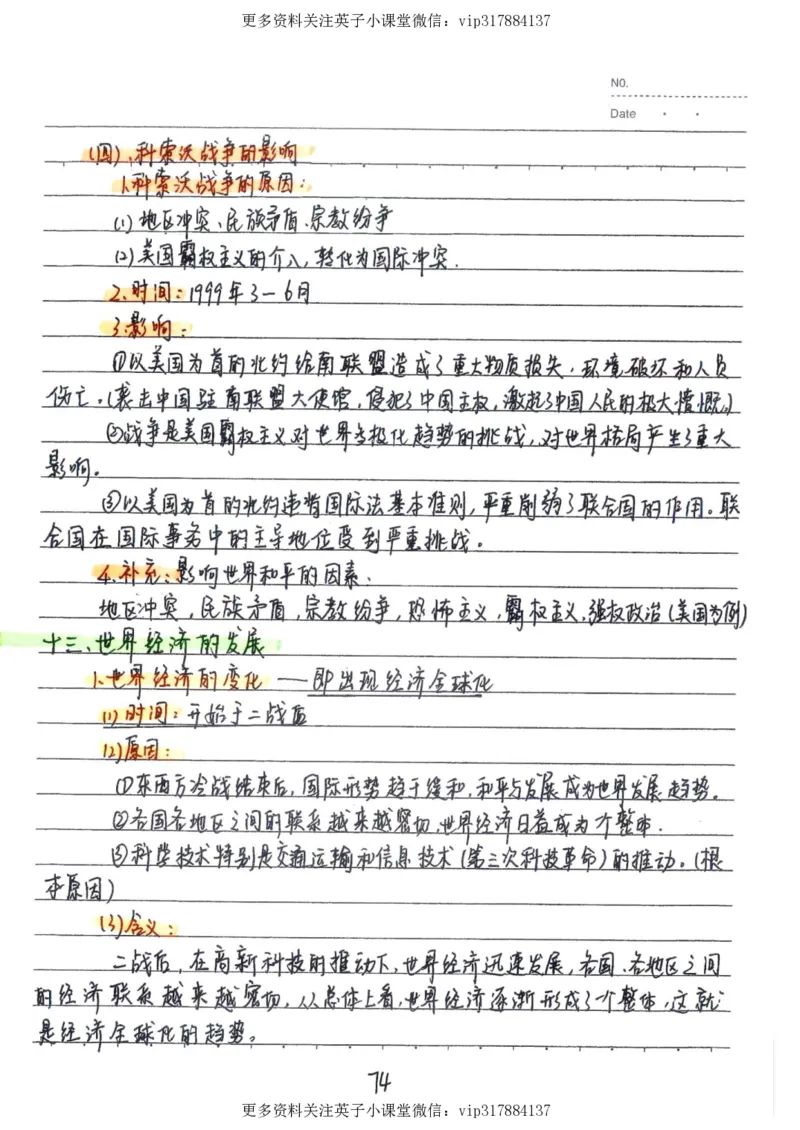 更多资料关注英子小课堂微信：vip317884137
NO.
Date
(四)、科索沃战争的影响
1.科索沃战争的原因：
(1)地区冲突、民族矛盾、宗教纷争
(2)美国霸权主义的介入，转化为国际冲突.
2.时间：1999年3—6月
3.影响：
①以美国为首的北约给南联盟造成了重大物质损失，环境破坏和人员
伤亡。(袭击中国驻南联盟大使馆，侵犯了中国主权，激起了中国人民的极大愤慨。)
②战争是美国霸权主义对世界多极化趋势的挑战，对世界格局产生了重大
影响。
③以美国为首的北约违背国际法基本准则，严重削弱了联合国的作用。联
合国在国际事务中的主导地位受到严重挑战。
4.补充：影响世界和平的因素.
地区冲突，民族矛盾，宗教纷争，恐怖主义，霸权主义、强权政治(美国为例)
十三、世界经济的发展
1.世界经济的变化——即出现经济全球化
(1)时间：开始于二战后
(2)原因：
①东西方冷战结束后，国际形势趋于缓和，和平与发展成为世界发展趋势。
②各国各地区之间的联系越来越密切，世界经济日益成为一个整体.
③科学技术特别是交通运输和信息技术(第三次科技革命)的推动。(根
本原因)
(3)含义：
二战后，在高新科技的推动下，世界经济迅速发展，各国、各地区之间
的经济联系越来越密切，从总体上看，世界经济逐渐形成了一个整体，这就
是经济全球化的趋势。
74
更多资料关注英子小课堂微信：vip317884137